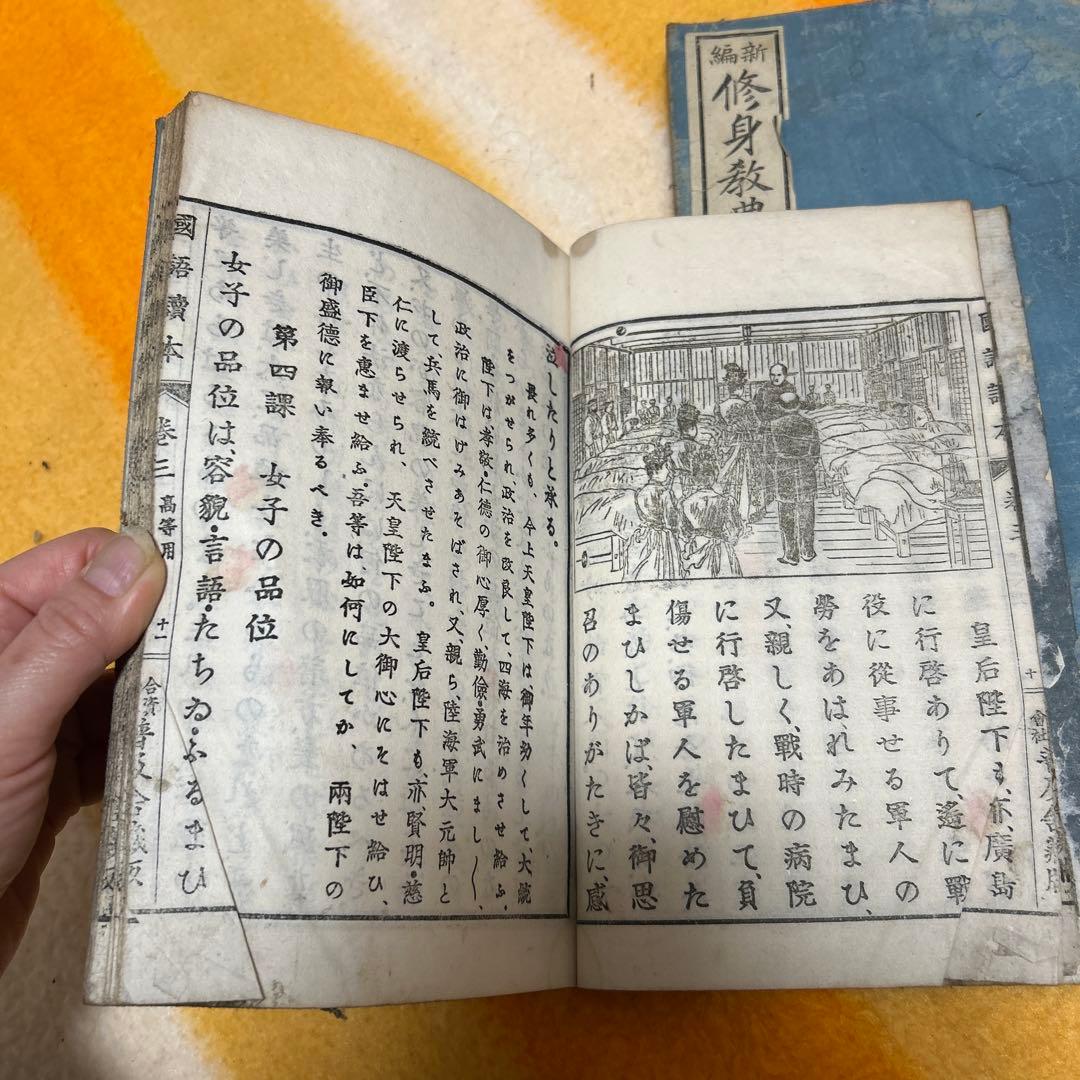 新編
修身教典
皇后陛下も、亦、廣島
に行啓ありて、遙に戰
役に從事せる軍人の
勞をあはれみたまひ、
又、親しく、戰時の病院
に行啓したまひて、負
傷せる軍人を慰めた
まひしかば、皆々、御思
召のありがたきに、感
泣したりと承る。
畏れ多くも、今上天皇陛下は御年幼くして、大統
をつがせられ、政治を改良して、四海を治めさせ給ふ。
陛下は、孝敬・仁德の御心厚く、勤儉・勇武にまし〳〵、
政治に御はげみあそばされ、又、親ら、陸海軍大元帥と
して、兵馬を統べさせたまふ。皇后陛下も、亦、賢明・慈
仁に渡らせられ、天皇陛下の大御心にそはせ給ひ、
臣下を惠ませ給ふ。吾等は、如何にしてか、兩陛下の
御盛德に報い奉るべき。
第四課 女子の品位
女子の品位は、容貌・言語・たちゐ・ふるまひ
國語讀本 卷三 高等用 十一 合資